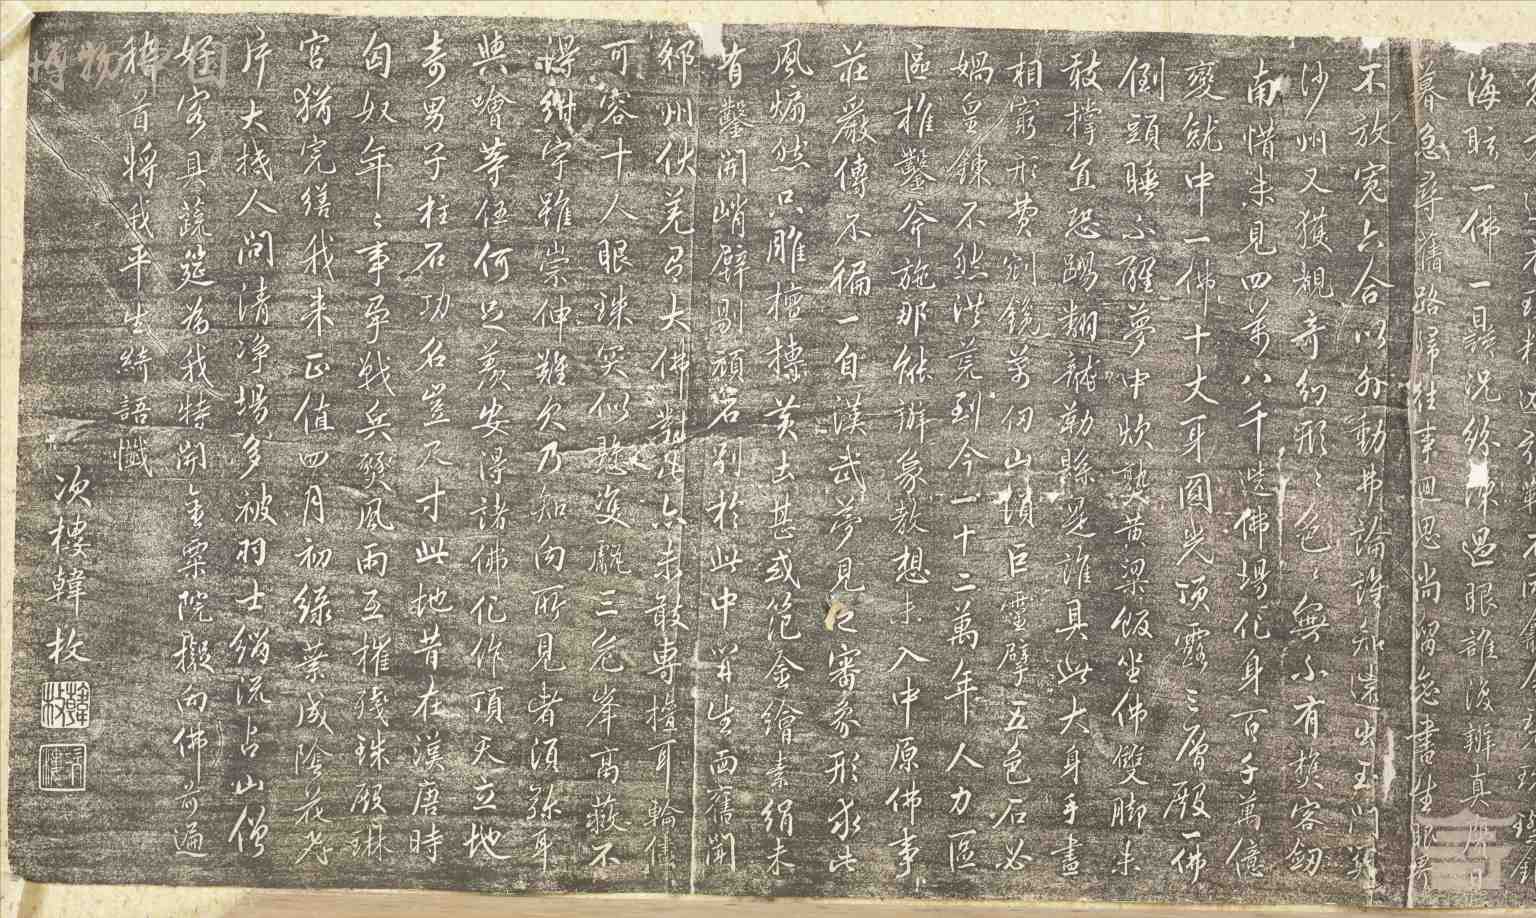 海眩一佛一曇況紛陳過眼誰復辨真
暮急尋舊路歸往事迴思尚留念書生眼界
不放寬六合以外動弗論詎知遠出玉門
沙州又獲觀奇幻形形色色無不有楚客
南惜未見四萬八千選佛場化身百千萬億
變就中一佛十丈身圓光頂露三層殿一佛
倒頭睡不醒夢中炊熟黃粱飯坐佛雙腳未
敢撐直恐踢翻敕勒縣是誰具此大身手盡
相窮形費劖鐫萬仞山頂巨靈擘五色石必
媧皇鍊不然洪荒到今一十二萬年人力區
區推鑿斧施那能辦象教想未入中原佛事
莊嚴傳不徧一自漢武夢見之審象形求此
風煽然只雕檀摶黃土甚或范金繪素絹未
有鑿開峭壁剔頑岩別於此中開生面舊聞
邠州伏羌有大佛對此亦未敢專擅耳輪儘
可容十人眼珠突似懸雙甗三危峯高蔽不
得紺宇雖崇伸難欠乃知向所見者須彌耳
與噲等伍何足羨安得諸佛化作頂天立地
奇男子柱石功名豈尺寸此地昔在漢唐時
匈奴年年事爭戰兵燹風雨互摧殘珠殿琳
宮猶完繕我來正值四月初綠葉成陰花
片大機人間清淨場多被羽士緇流占山僧
好客具蔬筵為我特開金粟院擬向佛前遍
稽首將我平生綺語懺
次樓韓枚
韓枚
次樓
博物中国